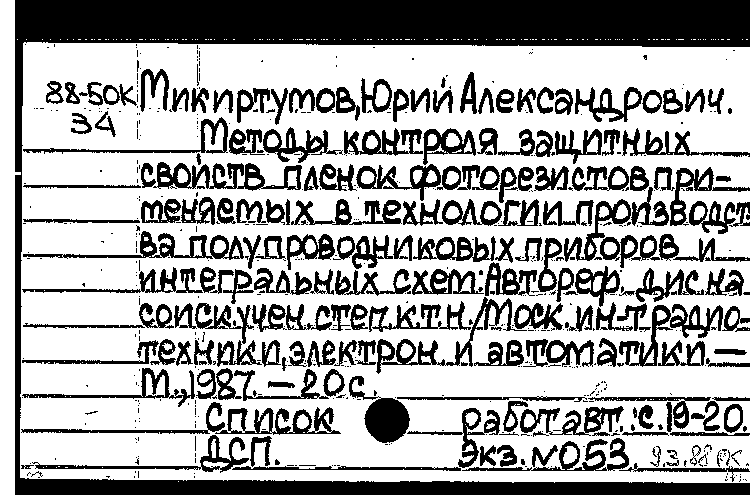 88-50К Микиртумов, Юрий Александрович.
34 Методы контроля защитных
свойств пленок фоторезистов, при-
меняемых в технологии производст-
ва полупроводниковых приборов и
интегральных схем: Автореф. дис. на
соиск. учен. степ. к.т.н. / Моск. ин-т радио-
техники, электрон. и автоматики. —
М., 1987. — 20 с.
Список работ авт.: с. 19-20.
ДСП. Экз. №053. 9.3.88